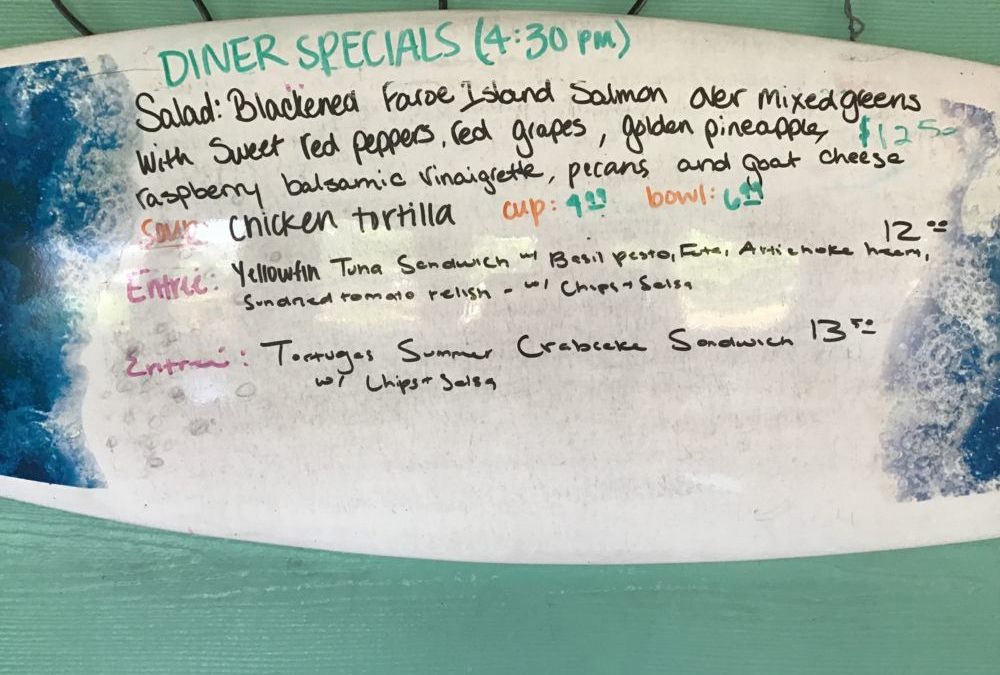 DINER SPECIALS (4:30 PM)
Salad: Blackened Faroe Island Salmon over mixed greens
with sweet red peppers, red grapes, golden pineapple, $12.50
raspberry balsamic vinaigrette, pecans and goat cheese
Soup: Chicken tortilla cup: 4.99 bowl: 6.99
12.00
Entrée: Yellowfin Tuna Sandwich w/ Basil pesto, Feta, Artichoke hearts,
Sundried tomato relish - w/ Chips + Salsa
Entrée: Tortugas Summer Crabcake Sandwich 13.50
w/ Chips + Salsa